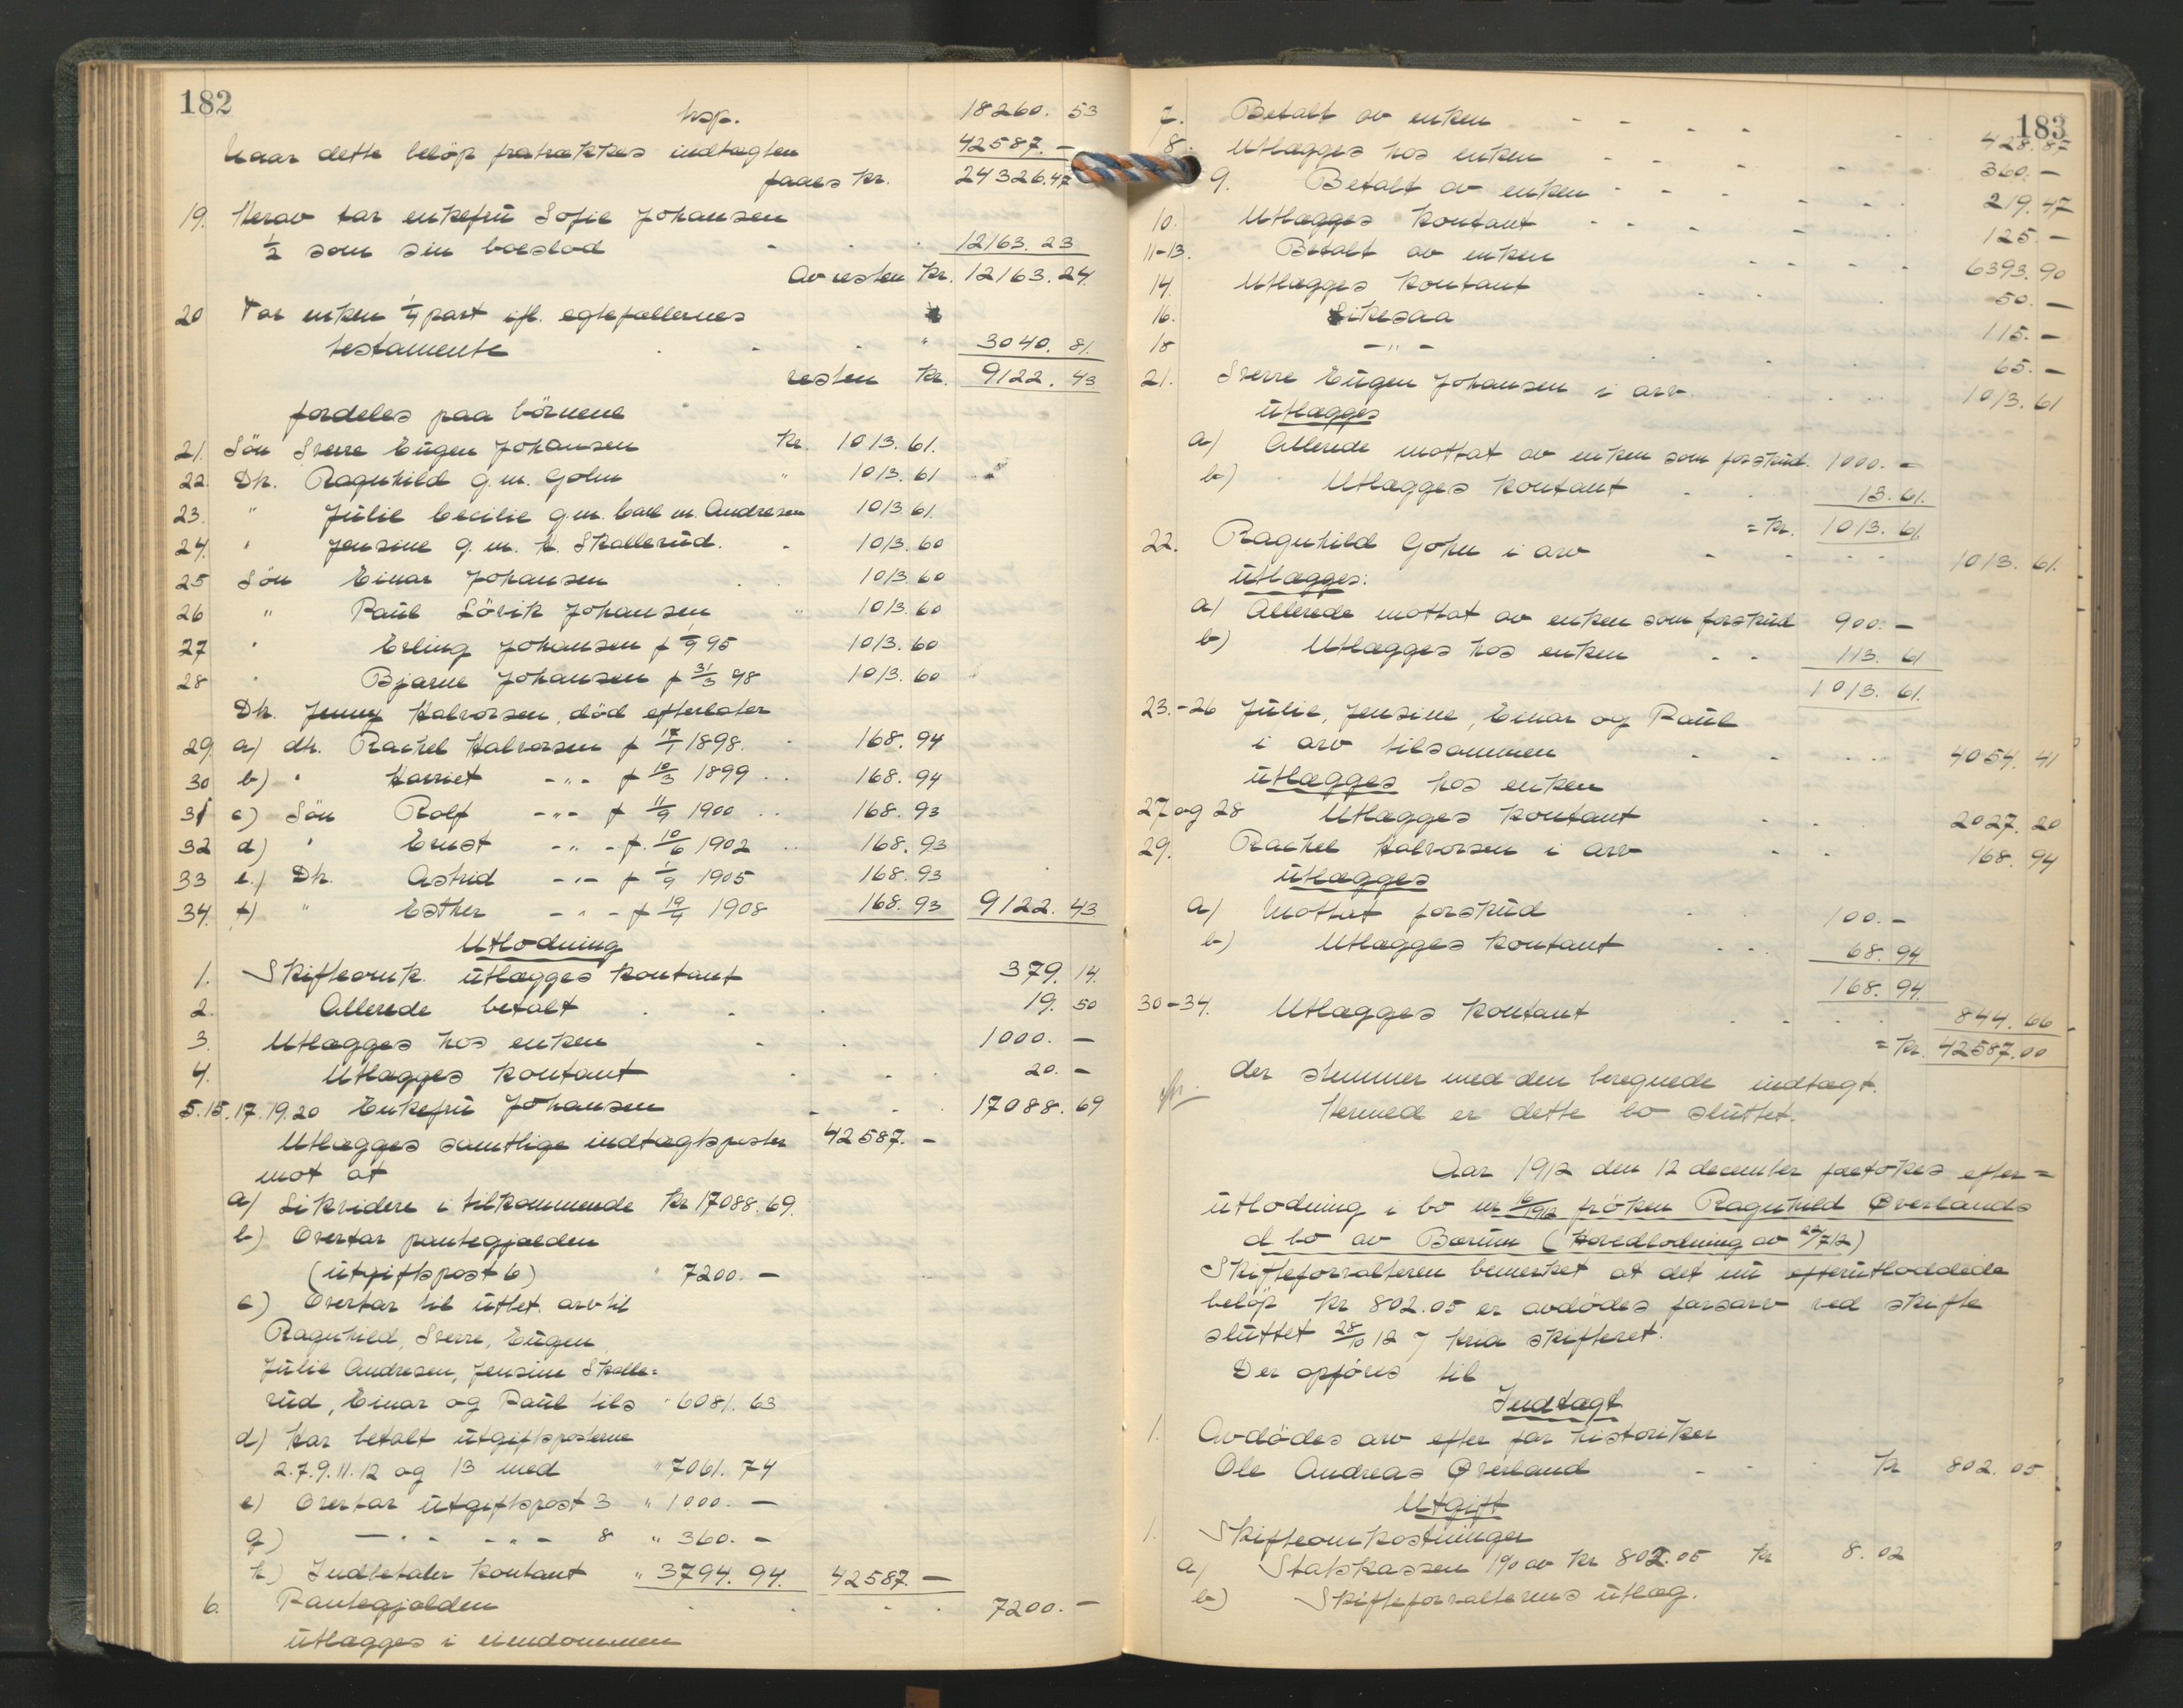 182
trsp. 18260. 53
Naar dette beløp fratrækkes indtægten 42587. —
faaes kr. 24326.47
19. Herav tar enkefru Sofie Johansen
1/2 som sin boeslod 12163. 23
Av resten kr. 12163. 24.
20 Tar enken 1/4 part ifl. egtefællernes
testamente " 3040. 81.
resten kr. 9122. 43
fordeles paa börnene
21. Sön Sverre Eugen Johansen kr. 1013. 61.
22. Dtr. Ragnhild g.m. Gohn " 1013. 61
23. " Julie Cecilie g.m. Carl m. Andresen 1013. 61.
24. " Jensine g. m. K. Skallerud. 1013. 60
25 Sön Einar Johansen 1013. 60
26 " Paul Lövik Johansen " 1013. 60
27 " Erling Johansen f 1/9 95 1013. 60
28 " Bjarne Johansen f 31/3 98 1013. 60
Dtr. Jenny Halvorsen, död efterlater
29. a) dtr. Rachel Halvorsen f 17/7 1898. 168. 94
30 b) " Harriet -"- f 10/3 1899 168. 94
31 c) Sön Rolf -"- f 11/9 1900 168. 93
32 d) " Ernst -"- f. 10/6 1902 168. 93
33 e.) Dtr. Astrid -"- f 1/9 1905 168. 93
34. f) " Esther -"- f 19/4 1908 168. 93 9122. 43
Utlodning
1. Skifteomk. utlægges kontant 379. 14.
2. Allerede betalt 19. 50
3. Utlægges hos enken 1000. —
4. Utlægges kontant 20. —
5.15.17.19.20 Enkefru Johansen 17088. 69
Utlægges samtlige indtægtsposter 42587. —
mot at
a) Likvidere i tilkommende kr 17088. 69.
b) Overtar pantegjælden
(utgiftspost 6) " 7200. —
c) Overtar til utlet. arv til
Ragnhild, Sverre, Eugen,
Julie Andresen, Jensine Skalle=
rud, Einar og Paul tils " 6081. 63
d) Har betalt utgiftsposterne
2.7.9.11.12 og 13 med " 7061. 74
e) Overtar utgiftspost 3 " 1000. —
g) —"- -"- 8 " 360. —
h) Indbetaler kontant " 3794. 94. 42587. —
6. Pantegjælden 7200. —
utlægges i eiendommen
183
7. Betalt av enken 428. 87
8. Utlægges hos enken 360. —
9. Betalt av enken 219. 47
10. Utlægges kontant 125. —
11-13. Betalt av enken 6393. 90
14. Utlægges kontant 50. —
16. Likesaa 115. —
18 —"— 65. —
21. Sverre Eugen Johansen i arv 1013. 61
utlægges
a) Allerede mottat av enken som forskud. 1000. —
b) Utlægges kontant 13. 61.
= kr. 1013. 61
22. Ragnhild Gohn i arv 1013. 61.
utlægges:
a) Allerede mottat av enken som forskud 900. —
b) Utlægges hos enken 113. 61
1013. 61.
23.-26 Julie, Jensine, Einar og Paul
i arv tilsammen 4054. 41
utlægges hos enken
27 og 28 Utlægges kontant 2027. 20
29. Rachel Halvorsen i arv 168. 94
utlægges
a) Mottat forskud 100. —
b) Utlægges kontant 68. 94
168. 94.
30-34. Utlægges kontant 844. 66
= kr. 42587. 00
der stemmer med den beregnede indtægt.
Hermed er dette bo sluttet.
Aar 1912 den 12 december foretokes efter=
utlodning i bo nr 16/1912 fröken Ragnhild Øverlands
d bo av Bærum (Hovedlodning av 22/7 12)
Skifteforvalteren bemerket at det nu efterutloddede
beløp kr 802.05 er avdødes farsarv ved skifte
sluttet 28/10 12 i Kria skifteret.
Der opføres til
Indtægt
1. Avdødes arv efter far historiker
Ole Andreas Øverland kr 802. 05
Utgift
1. Skifteomkostninger
a) Statskassen 1% av kr 802.05 kr 8. 02
b) Skifteforvalterens utlæg.